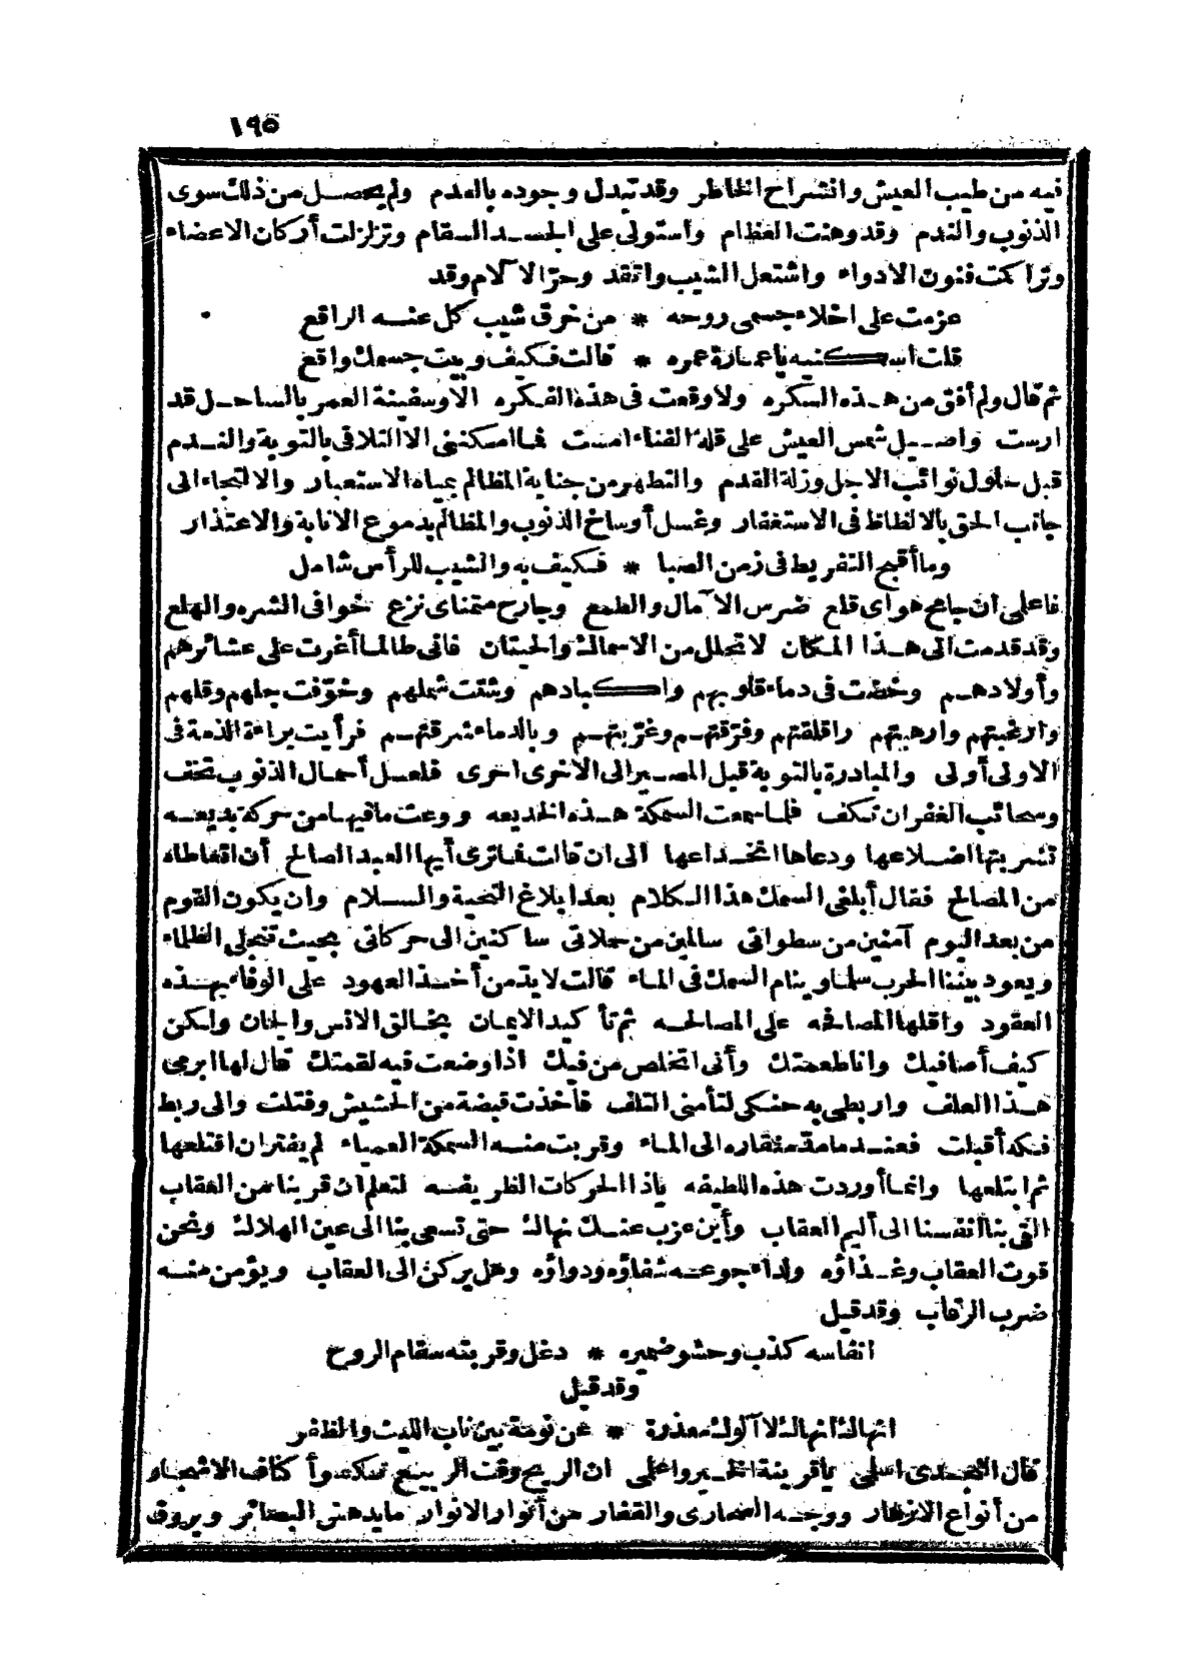 ١٩٥
فيه من طيب العيش وانشراح الخاطر وقد تبدل وجوده بالعدم ولم يحصل من ذلك سوى
الذنوب والندم وقد وهنت العظام واستولى على الجسد السقام وتزلزلت أركان الاعضاء
وتراكمت فنون الادواء واشتعل الشيب واتقد وحرّ الآلام وقد
عزمت على اخلاء جسمى روحه * من خرق شيب كل عنه الراقع
قلت اسكنيه ياعمارة عمره * قالت فكيف وبيت جسمك واقع
ثم قال ولم أفق من هذه السكره ولا وقعت فى هذه الفكره الا وسفينة العمر بالساحل قد
ارست واصيل شمس العيش على قلة الفناء امست فما امكننى الا التلافى بالتوبة والندم
قبل حلول نوائب الاجل وزلة القدم والتطهر من جناية المظالم بمياه الاستعبار والالتجاء الى
جانب الحق بالالظاظ فى الاستغفار وغسل أوساخ الذنوب والمظالم بدموع الانابة والاعتذار
وما أقبح التفريط فى زمن الصبا * فكيف به والشيب للرأس شامل
فاعلمى ان جامح هواى قلع ضرس الآمال والطمع وجارح متمناى نزع خوافى الشره والهلع
وقد قدمت الى هذا المكان لاتحلل من الاسماك والحيتان فانى طالما أغرت على عشائرهم
وأولادهم وخضت فى دماء قلوبهم واكبادهم وشتت شملهم وخوّفت جلهم وقلهم
وارعبتهم وارهبتهم واقلقتهم وفرّقتهم وغرّبتهم وبالدماء شرقتهم فرأيت براءة الذمة فى
الاولى أولى والمبادرة بالتوبة قبل المصير الى الاخرى احرى فلعل أحمال الذنوب تخف
وسحائب الغفران تكف فلما سمعت السمكة هذه الخديعه ووعت ما فيها من حركة بديعه
تشربتها اضلاعها ودعاها انخداعها الى ان قالت فماترى أيها العبد الصالح أن اتعاطاه
من المصالح فقال أبلغى السمك هذا الكلام بعد ابلاغ التحية والسلام وان يكون القوم
من بعد اليوم آمنين من سطواتى سالمين من حملاتى ساكنين الى حركاتى بحيث تنجلى الظلماء
ويعود بيننا الحرب سلما وينام السمك فى الماء قالت لابد من أخذ العهود على الوفاء بهذه
العقود واقلها المصافحه على المصالحه ثم تأكيد الايمان بخالق الانس والجان ولكن
كيف أصافيك وانا طعمتك وأنى اتخلص من فيك اذا وضعت فيه لقمتك قال لها ابرمى
هذا العلف واربطى به حنكى لتأمنى التلف فأخذت قبضة من الحشيش وفتلت والى ربط
فكه أقبلت فعند ما مدّ منقاره الى الماء وقربت منه السمكة العمياء لم يفتر ان اقتلعها
ثم ابتلعها وانما أوردت هذه اللطيفه ياذا الحركات الظريفه لتعلم ان قربنا من العقاب
القى بنا أنفسنا الى أليم العقاب وأين عزب عنك نهاك حتى تسعى بنا الى عين الهلاك ونحن
قوت العقاب وغذاؤه ولداء جوعه شفاؤه ودواؤه وهل يركن الى العقاب ويؤمن منه
ضرب الرقاب وقد قيل
انفاسه كذب وحشو ضميره * دغل وقربته سقام الروح
وقد قيل
انهاك انهاك لا آلوك معذرة * عن نومة بين ناب الليث والظفر
قال النجدى اسلمى ياقرينة الخير واعلمى ان الريح وقت الربيع تكسو أكناف الاشجار
من أنواع الازهار ووجه الصحارى والقفار من أنوار الانوار مايدهش البصائر ويروق